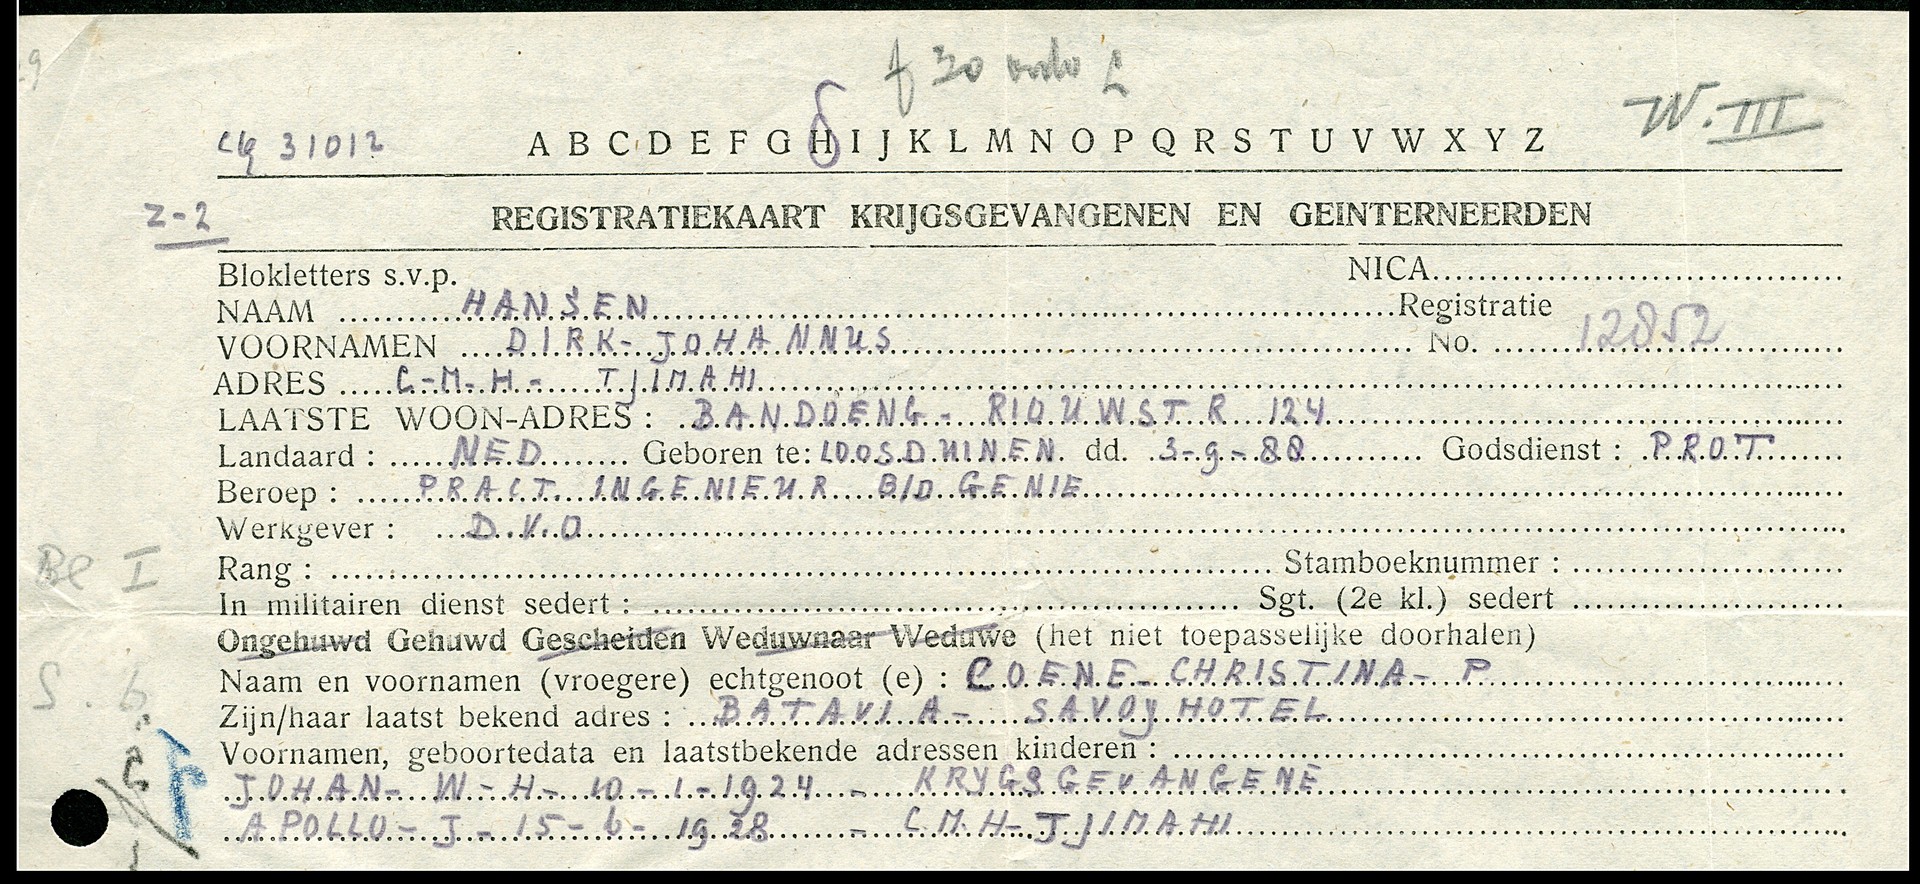 30
31012 A B C D E F G H I J K L M N O P Q R S T U V W X Y Z W. III
Z-2 REGISTRATIEKAART KRIJGSGEVANGENEN EN GEINTERNEERDEN
Blokletters s.v.p. NICA
NAAM HANSEN Registratie
VOORNAMEN DIRK-JOHANNUS No. 12852
ADRES C-M-H- TJIMAHI
LAATSTE WOON-ADRES: BANDOENG- RIOUWSTR 124
Landaard: NED Geboren te: LOOSDUINEN dd. 3-9-88 Godsdienst: PROT
Beroep: PRACT. INGENIEUR B/D GENIE
Werkgever: D.V.O
Be I
Rang: Stamboeknummer:
In militairen dienst sedert: Sgt. (2e kl.) sedert
Ongehuwd Gehuwd Gescheiden Weduwnaar Weduwe (het niet toepasselijke doorhalen)
S. 6
Naam en voornamen (vroegere) echtgenoot (e): COENE-CHRISTINA-P
Zijn/haar laatst bekend adres: BATAVIA- SAVOY HOTEL
Voornamen, geboortedata en laatstbekende adressen kinderen:
JOHAN- W-H- 10-1-1924 - KRYGSGEVANGENE
APOLLO-J- 15-6-1928 - C.M.H-TJIMAHI